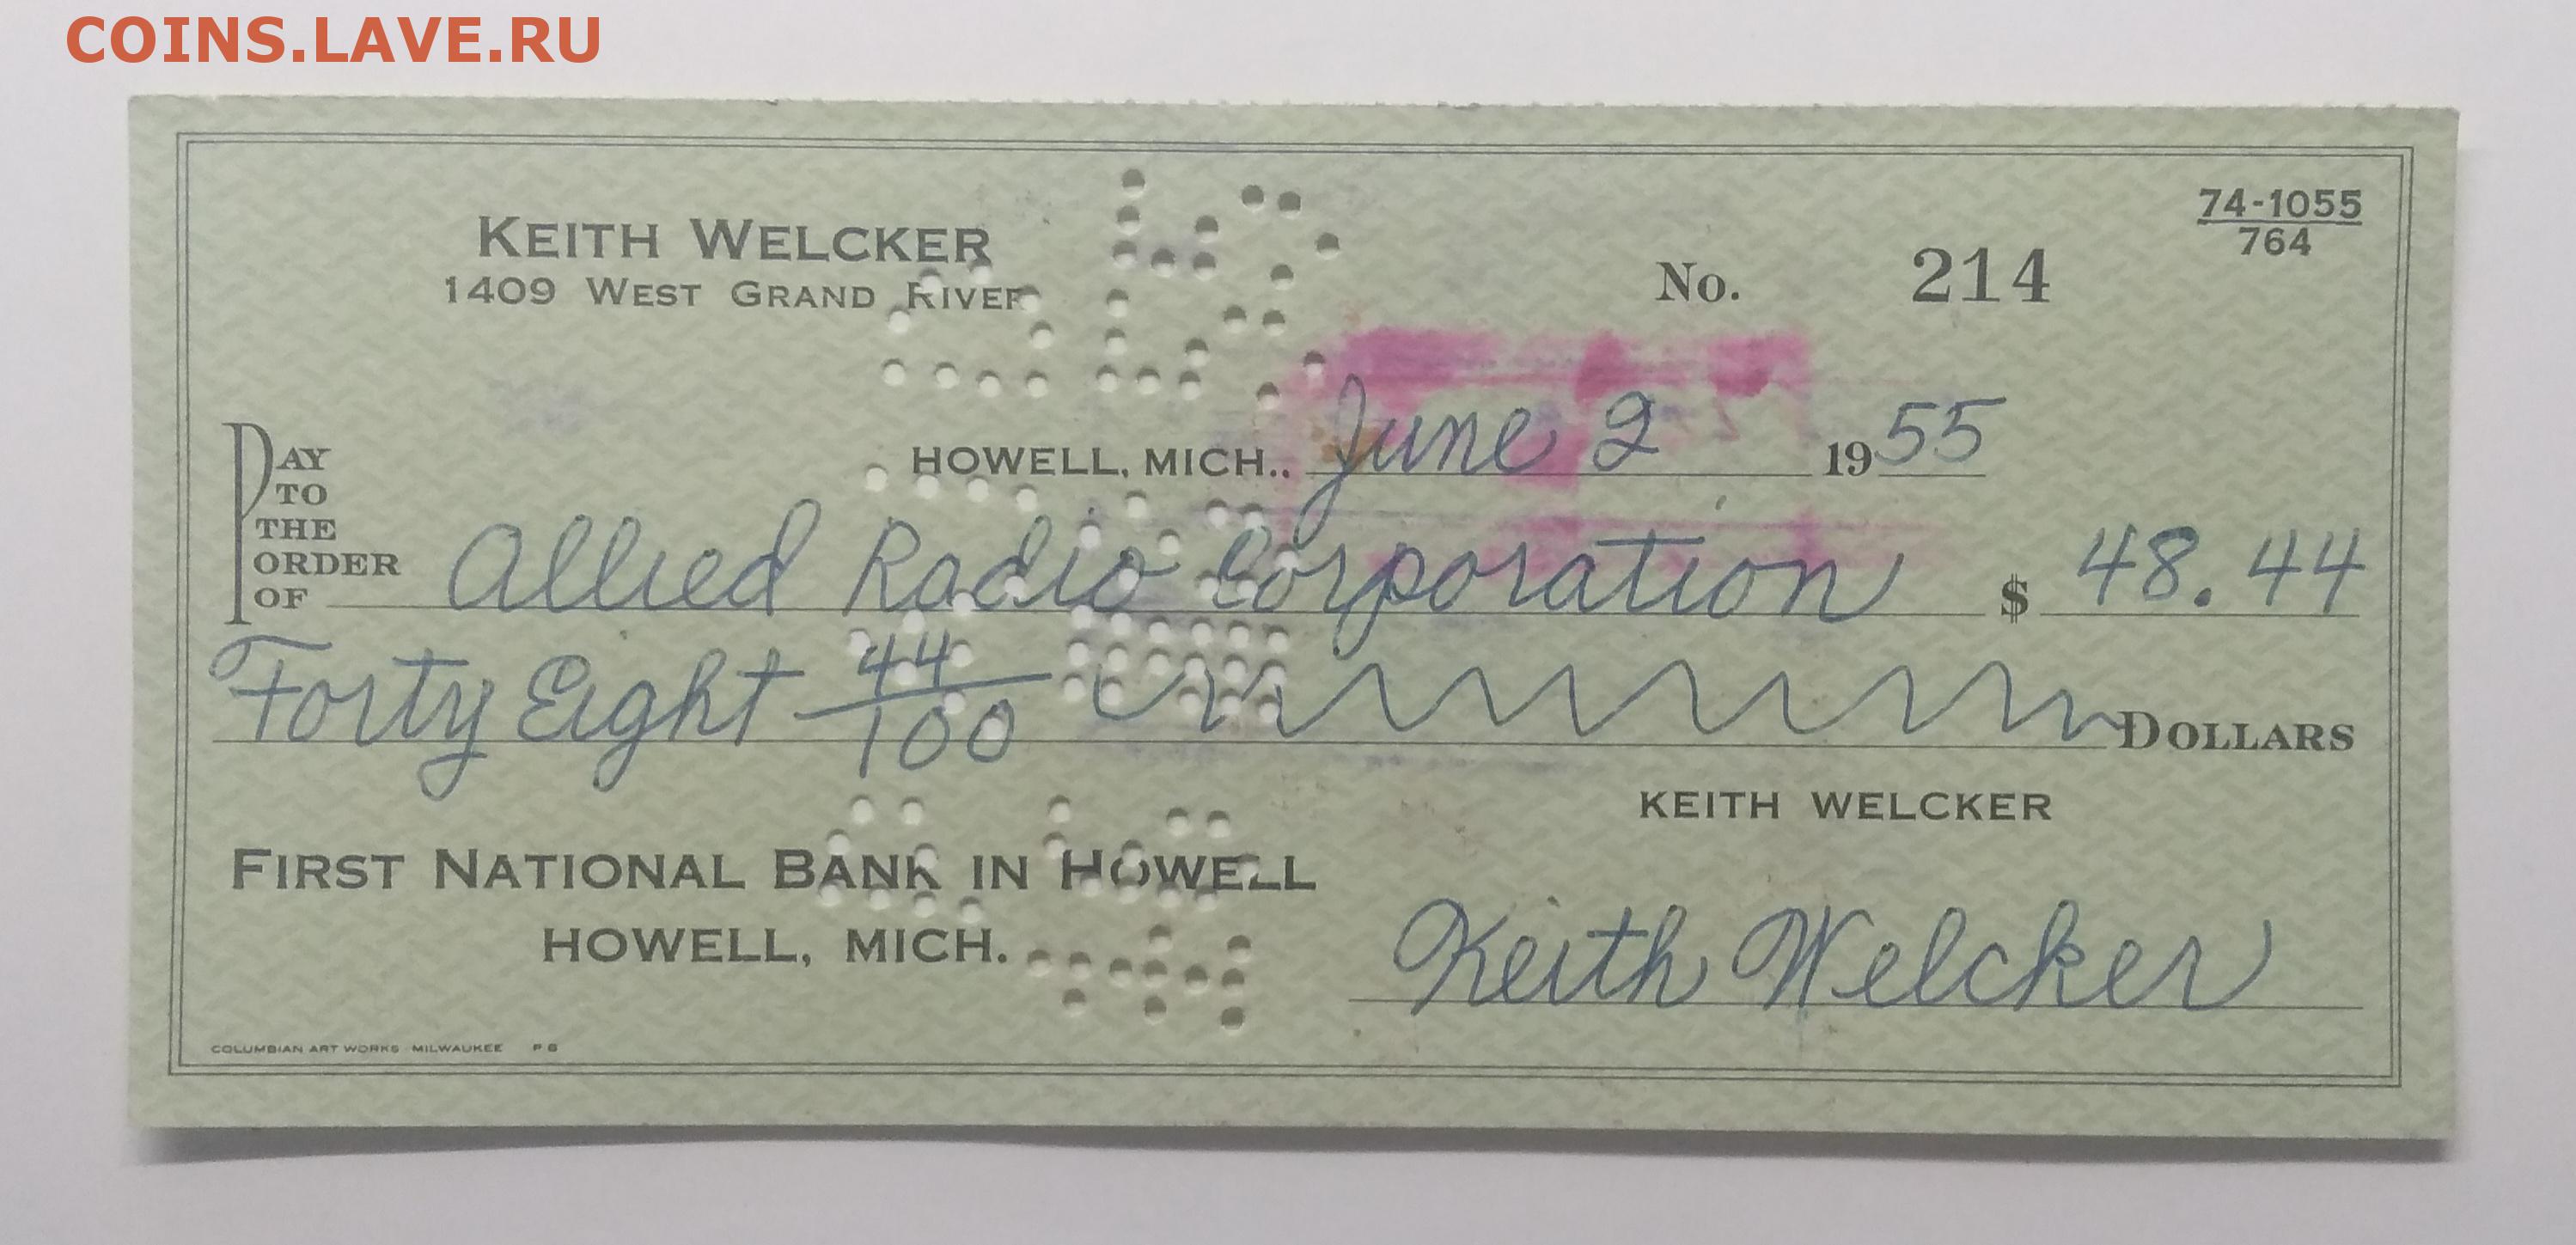 COINS.LAVE.RU
74-1055
764
KEITH WELCKER
1409 WEST GRAND RIVER
No. 214
HOWELL, MICH.. June 2 1955
PAY TO THE ORDER OF Allied Radio Corporation $ 48.44
Forty Eight 44/100 DOLLARS
KEITH WELCKER
FIRST NATIONAL BANK IN HOWELL
HOWELL, MICH.
Keith Welcker
COLUMBIAN ART WORKS MILWAUKEE P 6